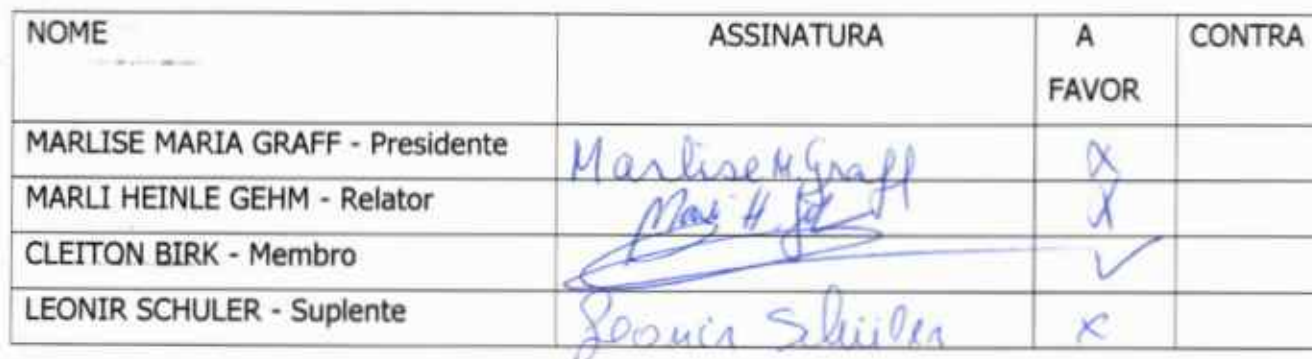 NOME ASSINATURA A FAVOR CONTRA
MARLISE MARIA GRAFF - Presidente Marlise M. Graff X
MARLI HEINLE GEHM - Relator Marli H. X
CLEITON BIRK - Membro ✓
LEONIR SCHULER - Suplente Leonir Schüler X